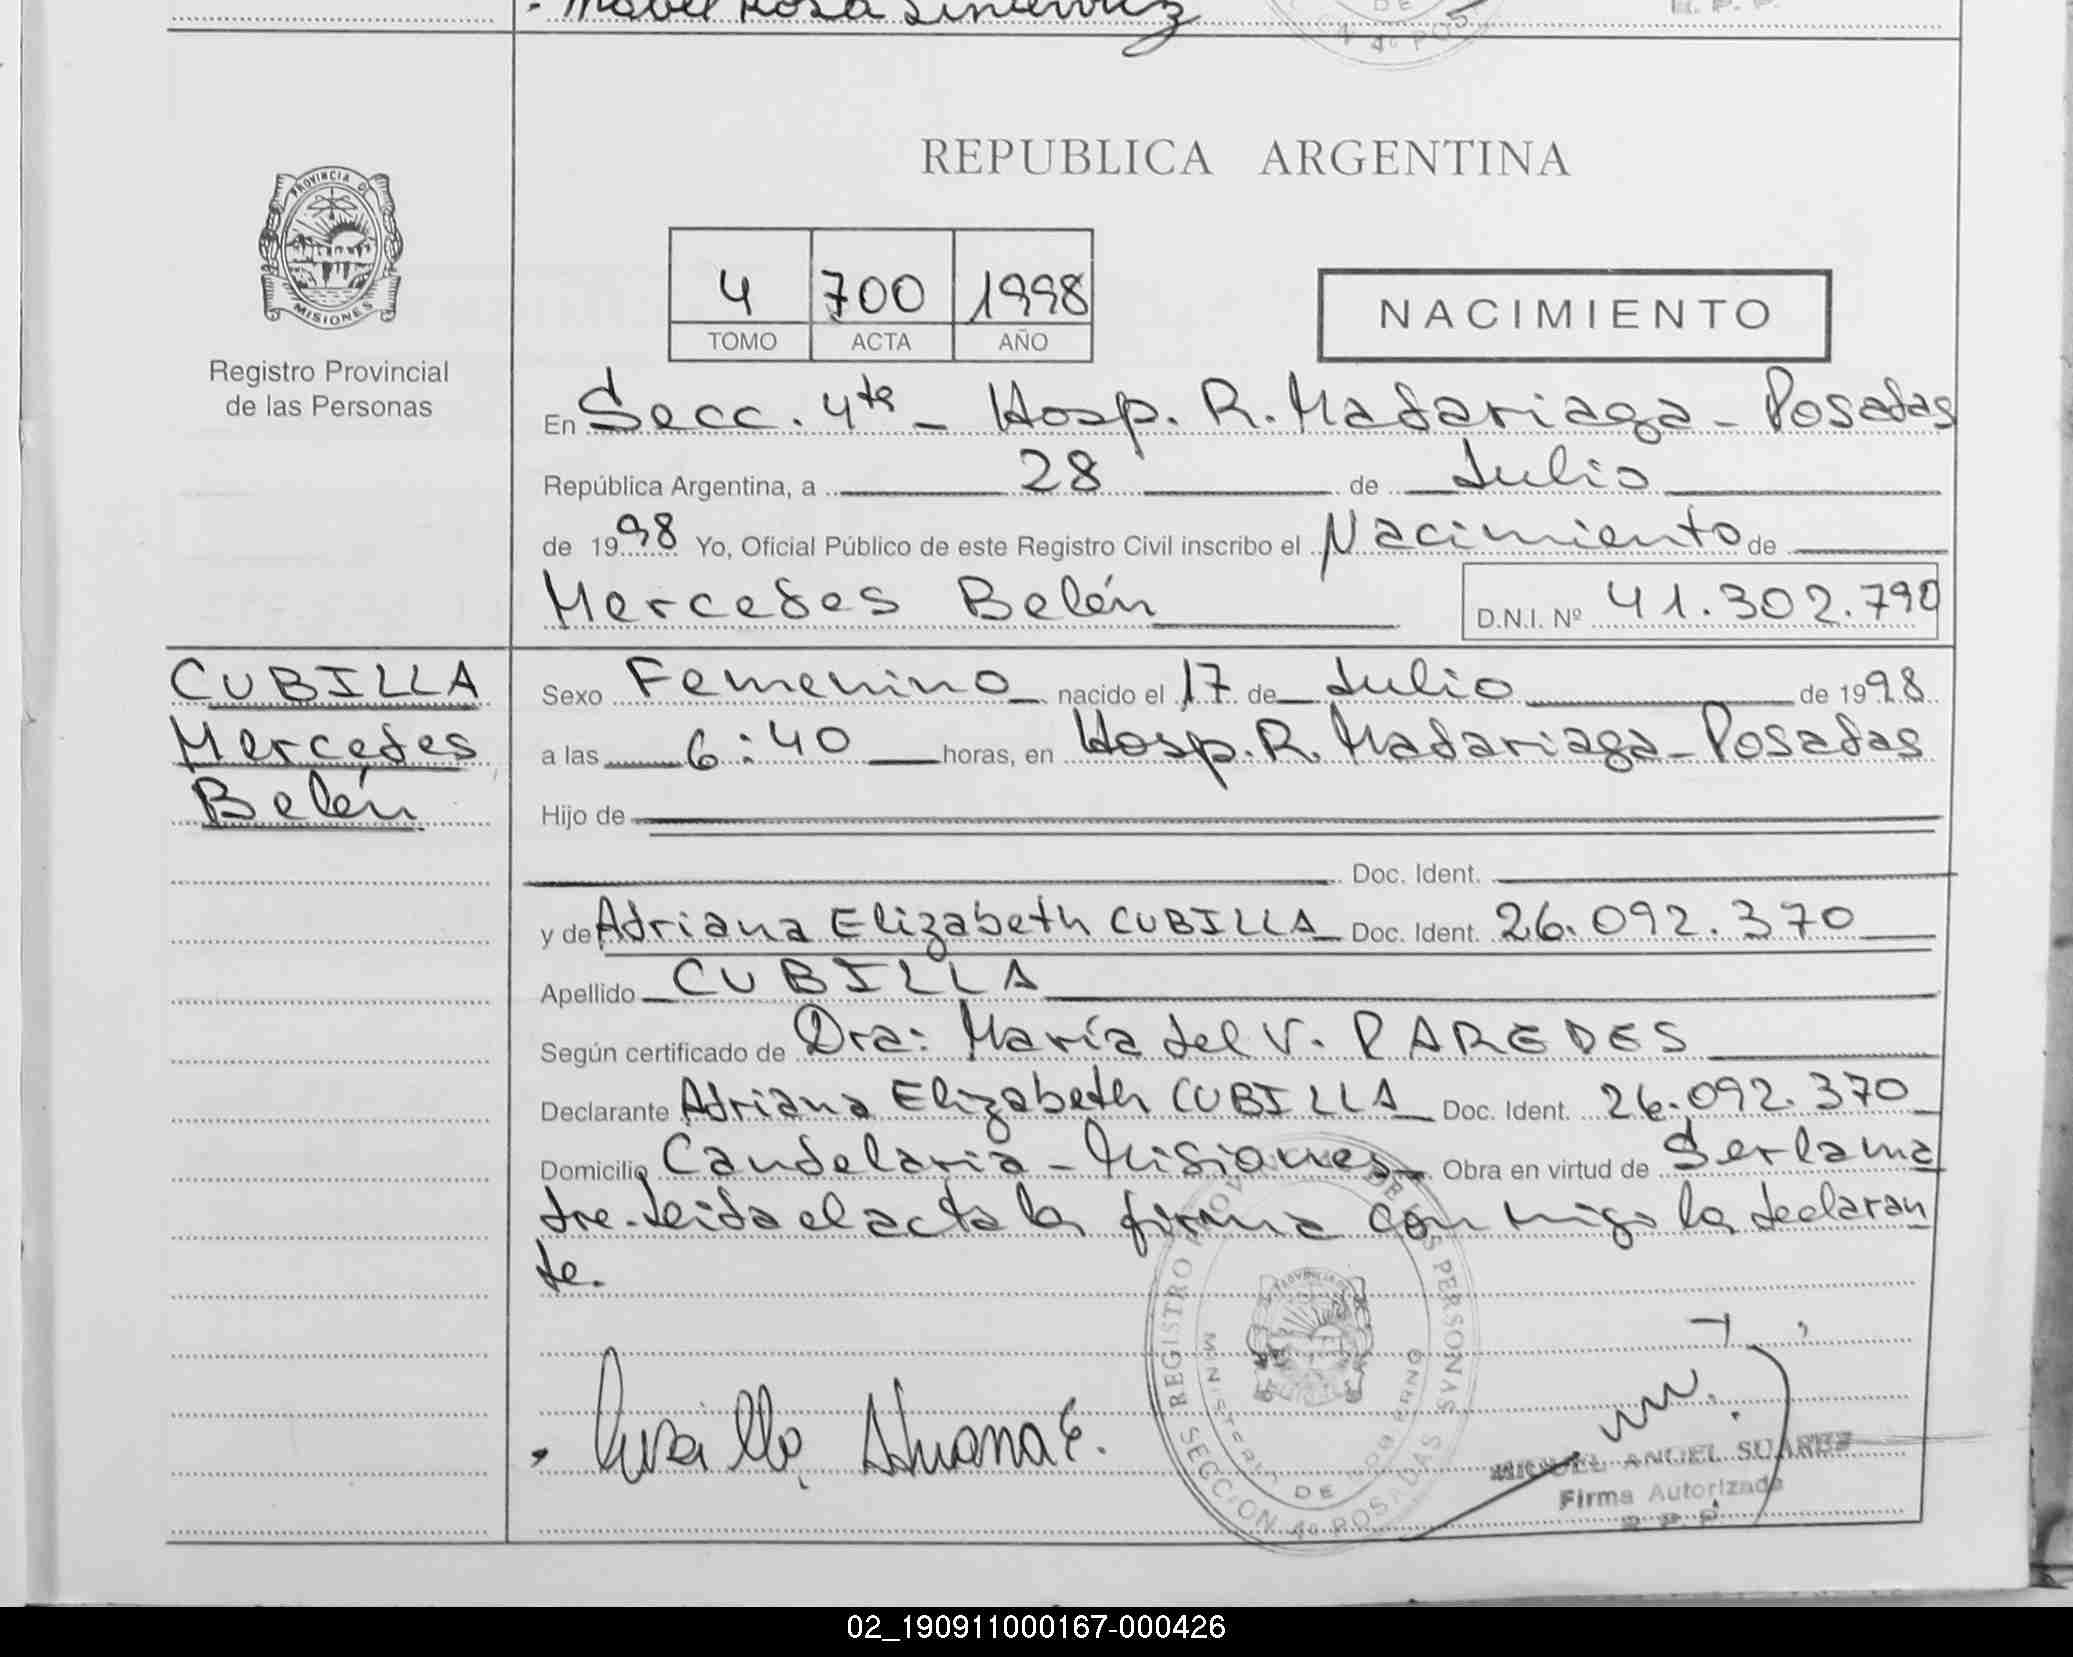 Mabel Rosa
DE
R. P. P.
N 4º POS
REPUBLICA ARGENTINA
PROVINCIA D
MISIONES
4 700 1998
TOMO ACTA AÑO
NACIMIENTO
Registro Provincial
de las Personas
En Secc. 4ta - Hosp. R. Madariaga - Posadas
República Argentina, a 28 de Julio
de 1998 Yo, Oficial Público de este Registro Civil inscribo el Nacimiento de
Mercedes Belén D.N.I. Nº 41.302.790
CUBILLA
Mercedes
Belén
Sexo Femenino nacido el 17 de Julio de 1998
a las 6:40 horas, en Hosp. R. Madariaga - Posadas
Hijo de
Doc. Ident.
y de Adriana Elizabeth CUBILLA Doc. Ident. 26.092.370
Apellido CUBILLA
Según certificado de Dra: María del V. PAREDES
Declarante Adriana Elizabeth CUBILLA Doc. Ident. 26.092.370
Domicilio Candelaria - Misiones Obra en virtud de Ser la ma
dre. Leida el acta la firma conmigo la declaran
te.
REGISTRO PROV DE LAS PERSONAS
MINISTERIO DE GOBIERNO
SECCION 4º POSADAS
Cubilla Adriana E.
MIGUEL ANGEL SUAREZ
Firma Autorizada
R. P. P.
02_190911000167-000426